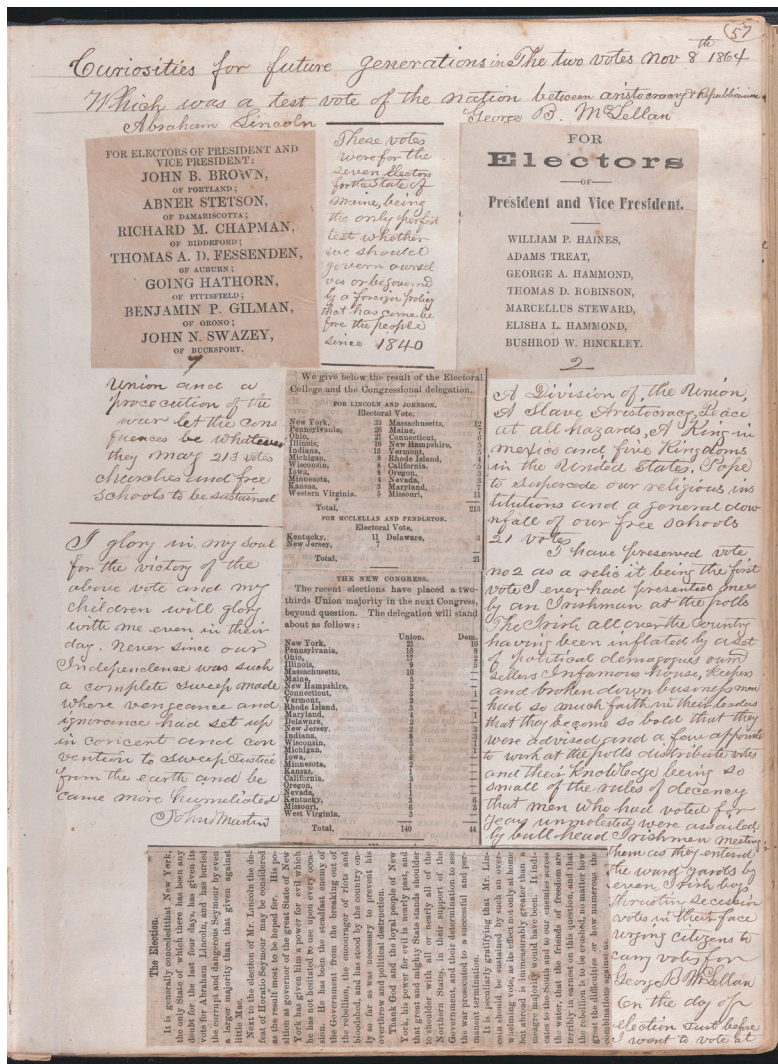 (57)
Curiosities for future generations in The two votes Nov 8th 1864
Which was a test vote of the nation between aristocracy & Republicanism
Abraham Lincoln
FOR ELECTORS OF PRESIDENT AND
VICE PRESIDENT:
JOHN B. BROWN,
OF PORTLAND;
ABNER STETSON,
OF DAMARISCOTTA;
RICHARD M. CHAPMAN,
OF BIDDEFORD;
THOMAS A. D. FESSENDEN,
OF AUBURN;
GOING HATHORN,
OF PITTSFIELD;
BENJAMIN P. GILMAN,
OF ORONO;
JOHN N. SWAZEY,
OF BUCKSPORT.
These votes
were for the
seven Electors
for the State of
Maine, being
the only perfect
test whether
we should
govern oursel
ves or be governd
by a foreign policy
that has come be
fore the people
since 1840
George B. McLellan
FOR
Electors
OF
President and Vice President.
WILLIAM P. HAINES,
ADAMS TREAT,
GEORGE A. HAMMOND,
THOMAS D. ROBINSON,
MARCELLUS STEWARD,
ELISHA L. HAMMOND,
BUSHROD W. HINCKLEY.
2
Union and a
prococution of the
war let the cons
quences be whatever
they may 213 votes
churches and free
schools to be sustained
I glory in my soul
for the victory of the
above vote and my
children will glory
with me even in their
day. Never since our
Independense was such
a complete sweep made
where vengeance and
ignorance had set up
in concert and con
vention to sweep Justice
from the earth and be
came more humiliated
John Martin
We give below the result of the Electoral
College and the Congressional delegation.
FOR LINCOLN AND JOHNSON.
Electoral Vote.
New York, 33 Massachusetts, 12
Pennsylvania, 26 Maine,
Ohio, 21 Connecticut, 6
Illinois, 16 New Hampshire, 5
Indiana, 13 Vermont, 5
Michigan, 8 Rhode Island, 4
Wisconsin, 8 California, 5
Iowa, 8 Oregon, 3
Minnesota, 4 Nevada,
Kansas, 3 Maryland, 7
Western Virginia. 5 Missouri, 11
Total, 213
FOR MCCLELLAN AND PENDLETON.
Electoral Vote,
Kentucky, 11 Delaware, 3
New Jersey, 7
Total, 21
THE NEW CONGRESS.
The recent elections have placed a two-
thirds Union majority in the next Congress,
beyond question. The delegation will stand
about as follows:
Union. Dem.
New York, 21 10
Pennsylvania, 16 8
Ohio, 17 2
Illinois, 9
Massachusetts, 10
Maine, 5
New Hampshire, 3
Connecticut, 3 1
Vermont, 3
Rhode Island, 2
Maryland, 4 1
Delaware,
New Jersey, 2 3
Indiana, 8 3
Wisconsin, 5 1
Michigan, 5 1
Iowa, 6
Minnesota, 2
Kansas, 1
California, 3
Oregon, 1
Nevada, 1
Kentucky, 3 6
Missouri, 6 3
West Virginia, 3
Total, 140 44
A Division of the Union,
A Slave Aristocracy, Peace
at all hazards, A King in
mexico and five Kingdoms
in the United States. Pope
to supercede our religious ins
titutions and a general dow
nfall of our free schools
21 votes
I have preserved vote
no 2 as a relic it being the first
vote I ever had presented me
by an Irishman at the polls
The Irish all over the country
having been inflated by a set
of political demagogues
sellers Infamous House, Keepers
and broken down business men
had so much faith in their leaders
that they become so bold that they
were advised and a few appointed
to work at the polls distribute votes
and their knowledge being so
small of the rules of deceney
that men who had voted for
years unmolested were assailed
by bull-head Irishmen meeting
them as they entered
the ward yards by
even Irish boys
thrusting secession
votes in their face
urging citizens to
carry votes for
George B McLellan
On the day of
election Just before
I went to vote at
The Election.
It is generally conceded that New York,
the only State of which there has been any
doubt for the last four days, has given its
vote for Abraham Lincoln, and has buried
the corrupt and dangerous Seymour by even
a larger majority than that given against
little Mac.
Next to the election of Mr. Lincoln the de-
feat of Horatio Seymour may be considered
as the result most to be hoped for. His po-
sition as governor of the great State of New
York has given him a power for evil which
he has not hesitated to use upon every occa-
sion. He has been the steadfast enemy of
the Government from the breaking out of
the rebellion, the encourager of riots and
bloodshed, and has stood by the country on-
ly so far as was necessary to prevent his
overthrow and political destruction.
Thank God and the loyal people of New
York, his power for evil is nearly past, and
that great and mighty State stands shoulder
to shoulder with all or nearly all of the
Northern States, in their support of the
Government, and their determination to see
the war prosecuted to a successful and per-
manent conclusion.
It is peculiarly gratifying that Mr. Lin-
coln should be sustained by such an over-
whelming vote, as its effect not only at home
but abroad is immeasurably greater than a
meagre majority would have been. It indi-
cates to the South and to our enemies across
the water, that the friends of freedom are
terribly in earnest on this question, and that
the rebellion is to be crushed, no matter how
great the difficulties or how numerous the
combinations against us.